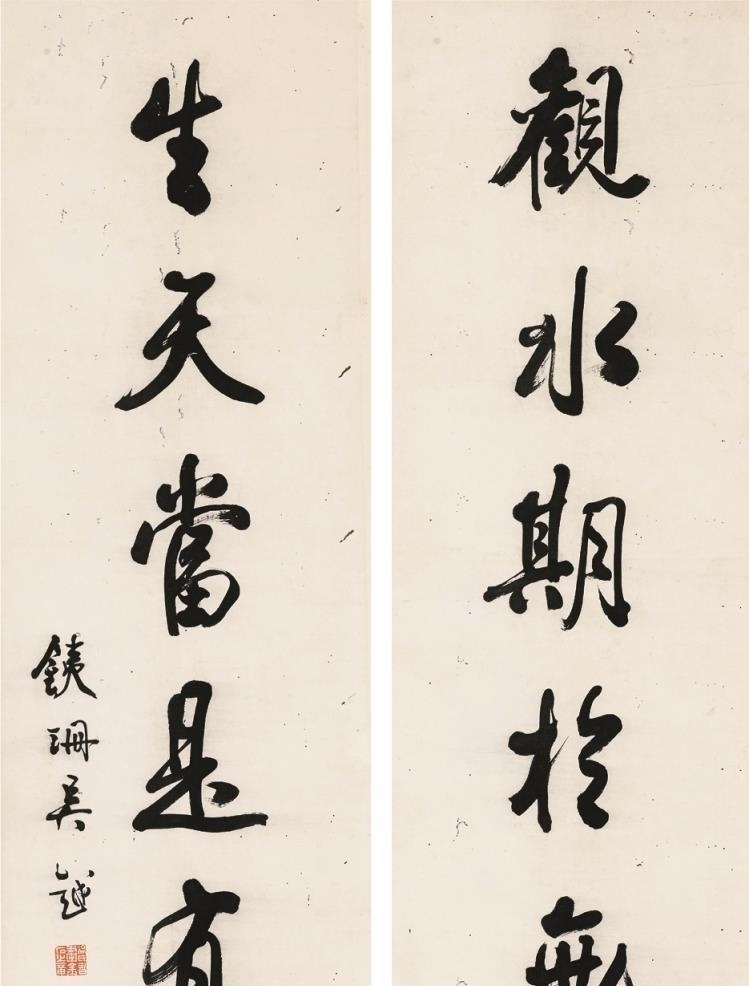 觀水期於無
生天當是有
鐵珊吳越